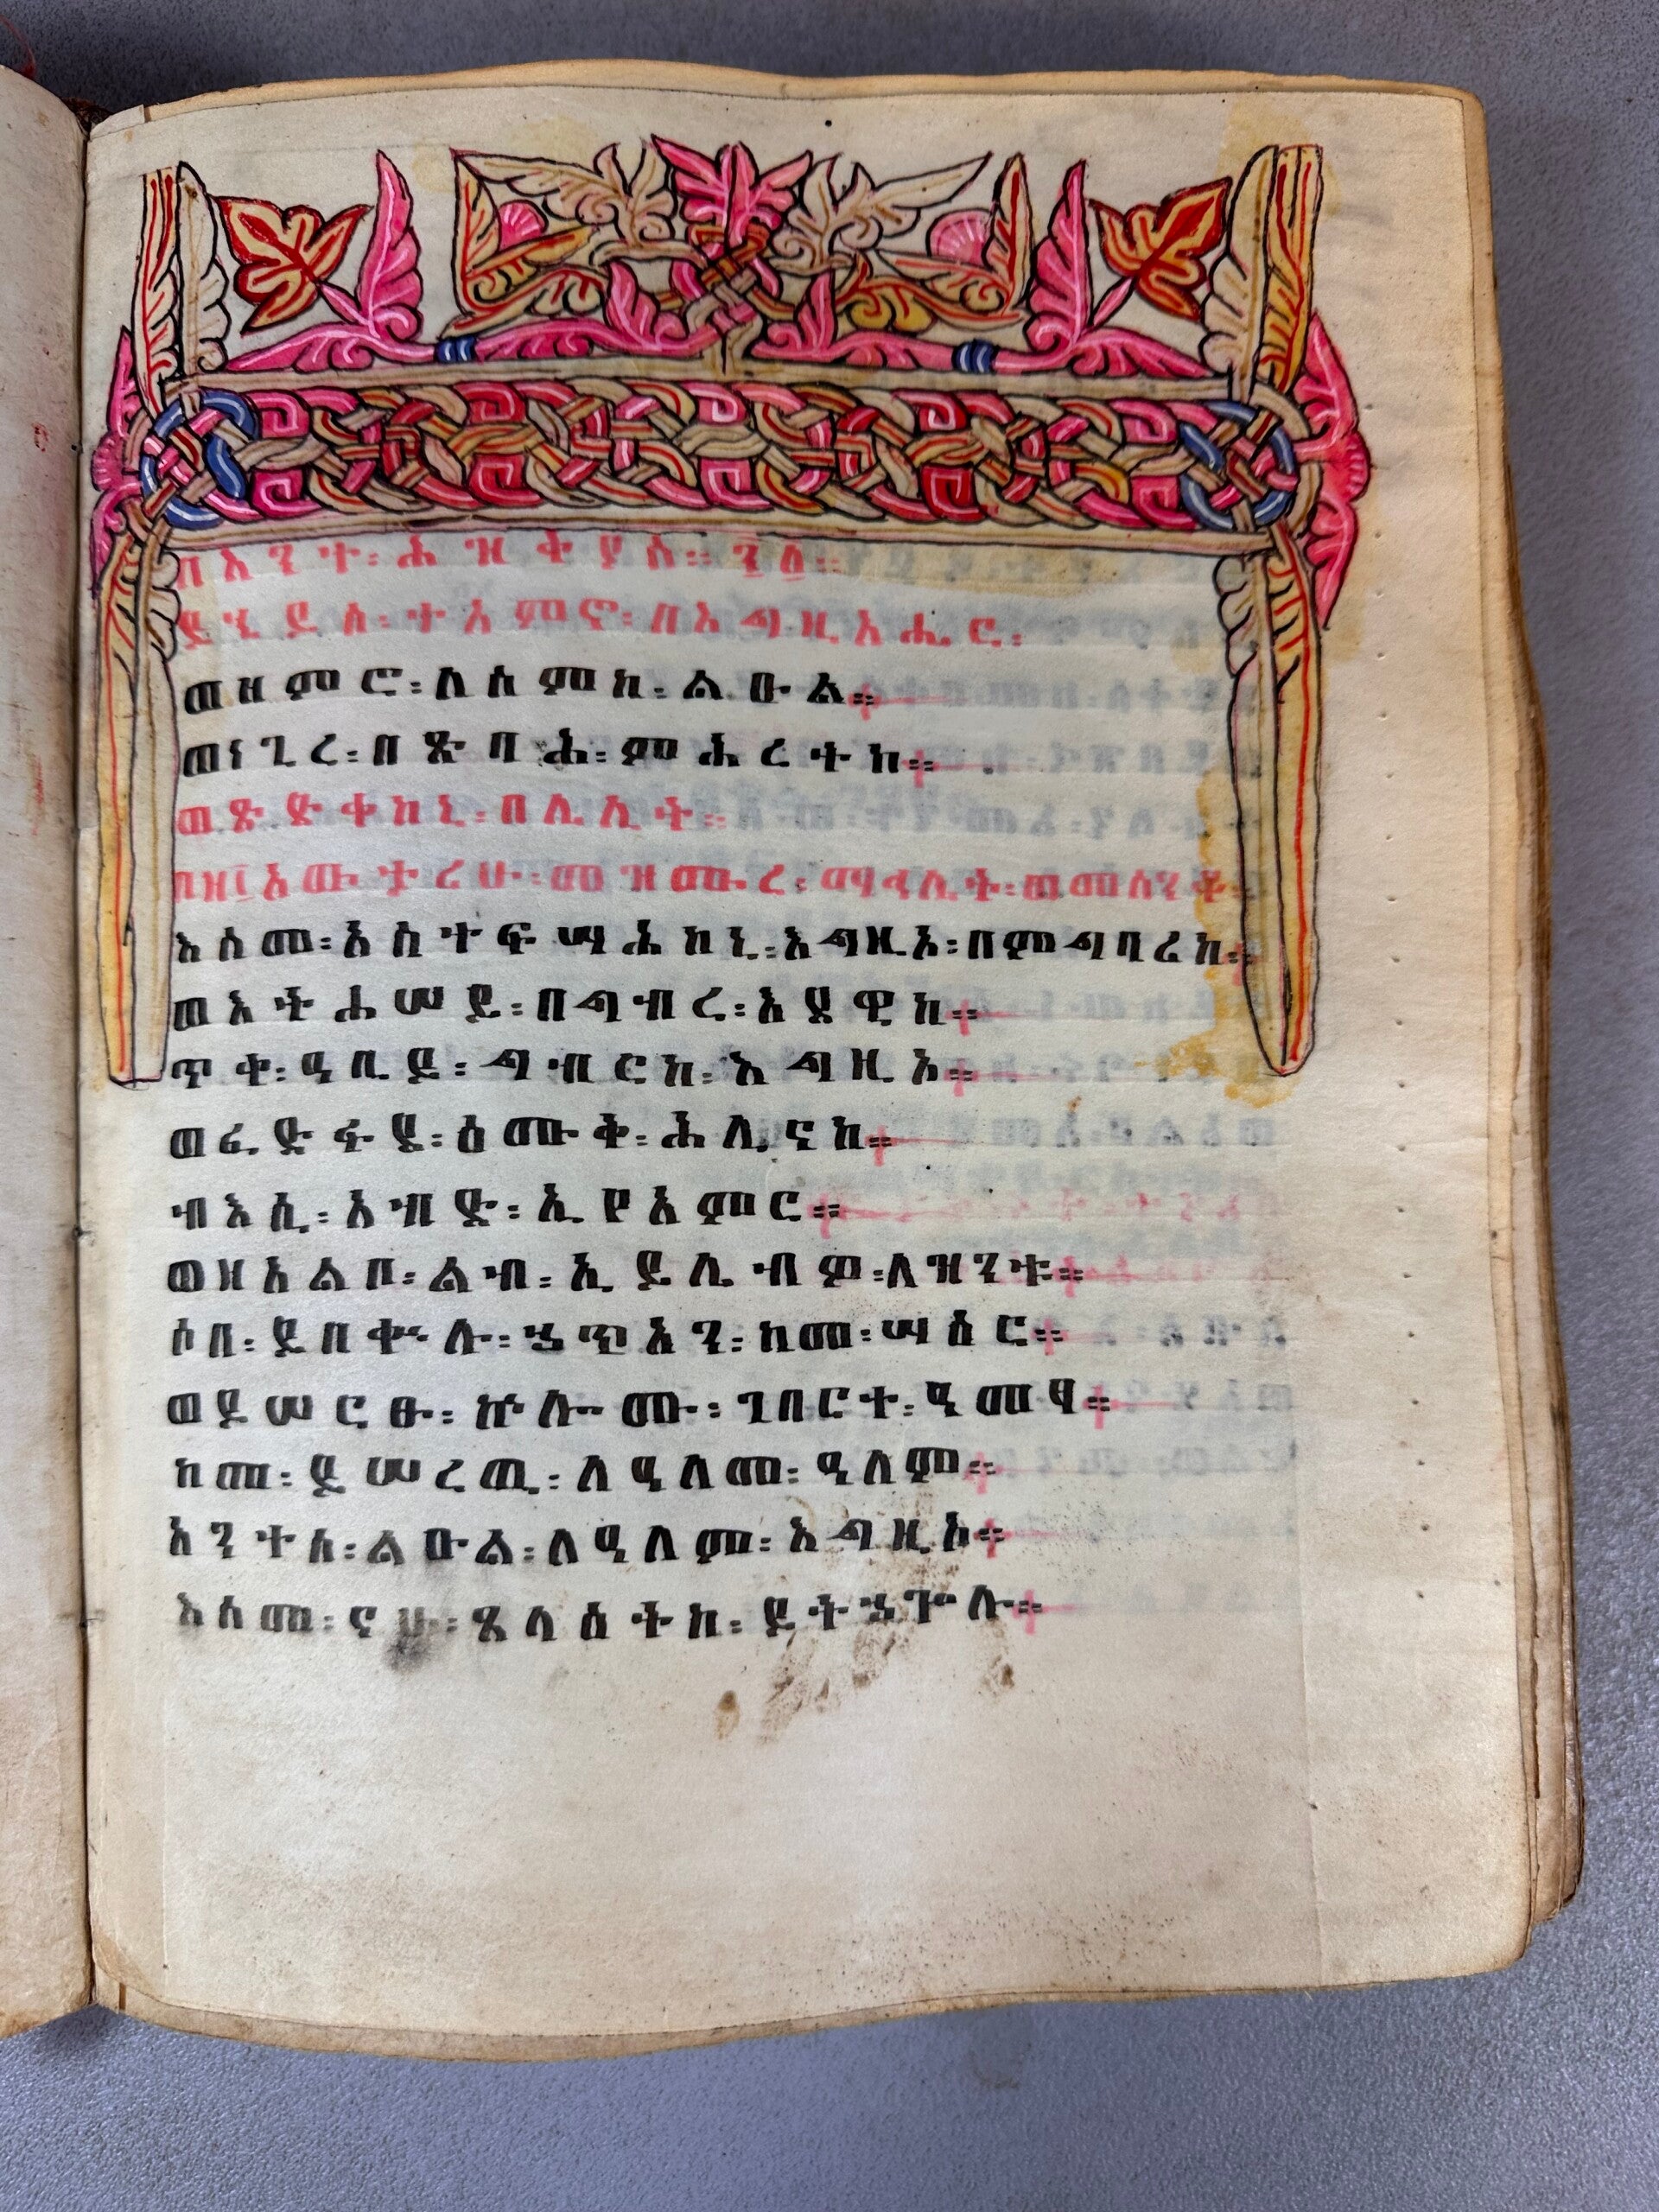 በእንተ፡ ሕዝቅያስ። ፺፩።
ይኄይስ፡ ተአምኖ፡ በእግዚአሔር፡
ወዘምሮ፡ ለስምከ፡ ልዑል።
ወነጊረ፡ በጽባሕ፡ ምሕረትከ።
ወጽድቀከኒ፡ በሌሊት።
በዘ፲አውታሪሁ፡ መዝሙረ፡ ማኅሌት፡ ወመሰንቆ።
እስመ፡ አስተፍሣሕከኒ፡ እግዚኦ፡ በምግባሪከ።
ወእትሐሠይ፡ በግብረ፡ እደዊከ።
ጥቀ፡ ዓቢይ፡ ግብርከ፡ እግዚኦ።
ወፈድፋደ፡ ዕሙቅ፡ ሕሊናከ።
ብእሲ፡ አብድ፡ ኢየአምር።
ወዘአልቦ፡ ልብ፡ ኢይሌብዎ፡ ለዝንቱ።
ሶበ፡ ይበቍሉ፡ ኃጥአን፡ ከመ፡ ሣዕር።
ወይሠርፁ፡ ኵሎሙ፡ ገበርተ፡ ዓመፃ።
ከመ፡ ይሠረዉ፡ ለዓለመ፡ ዓለም።
አንተሰ፡ ልዑል፡ ለዓለም፡ እግዚኦ።
እስመ፡ ናሁ፡ ጸላዕትከ፡ ይትኃጐሉ።